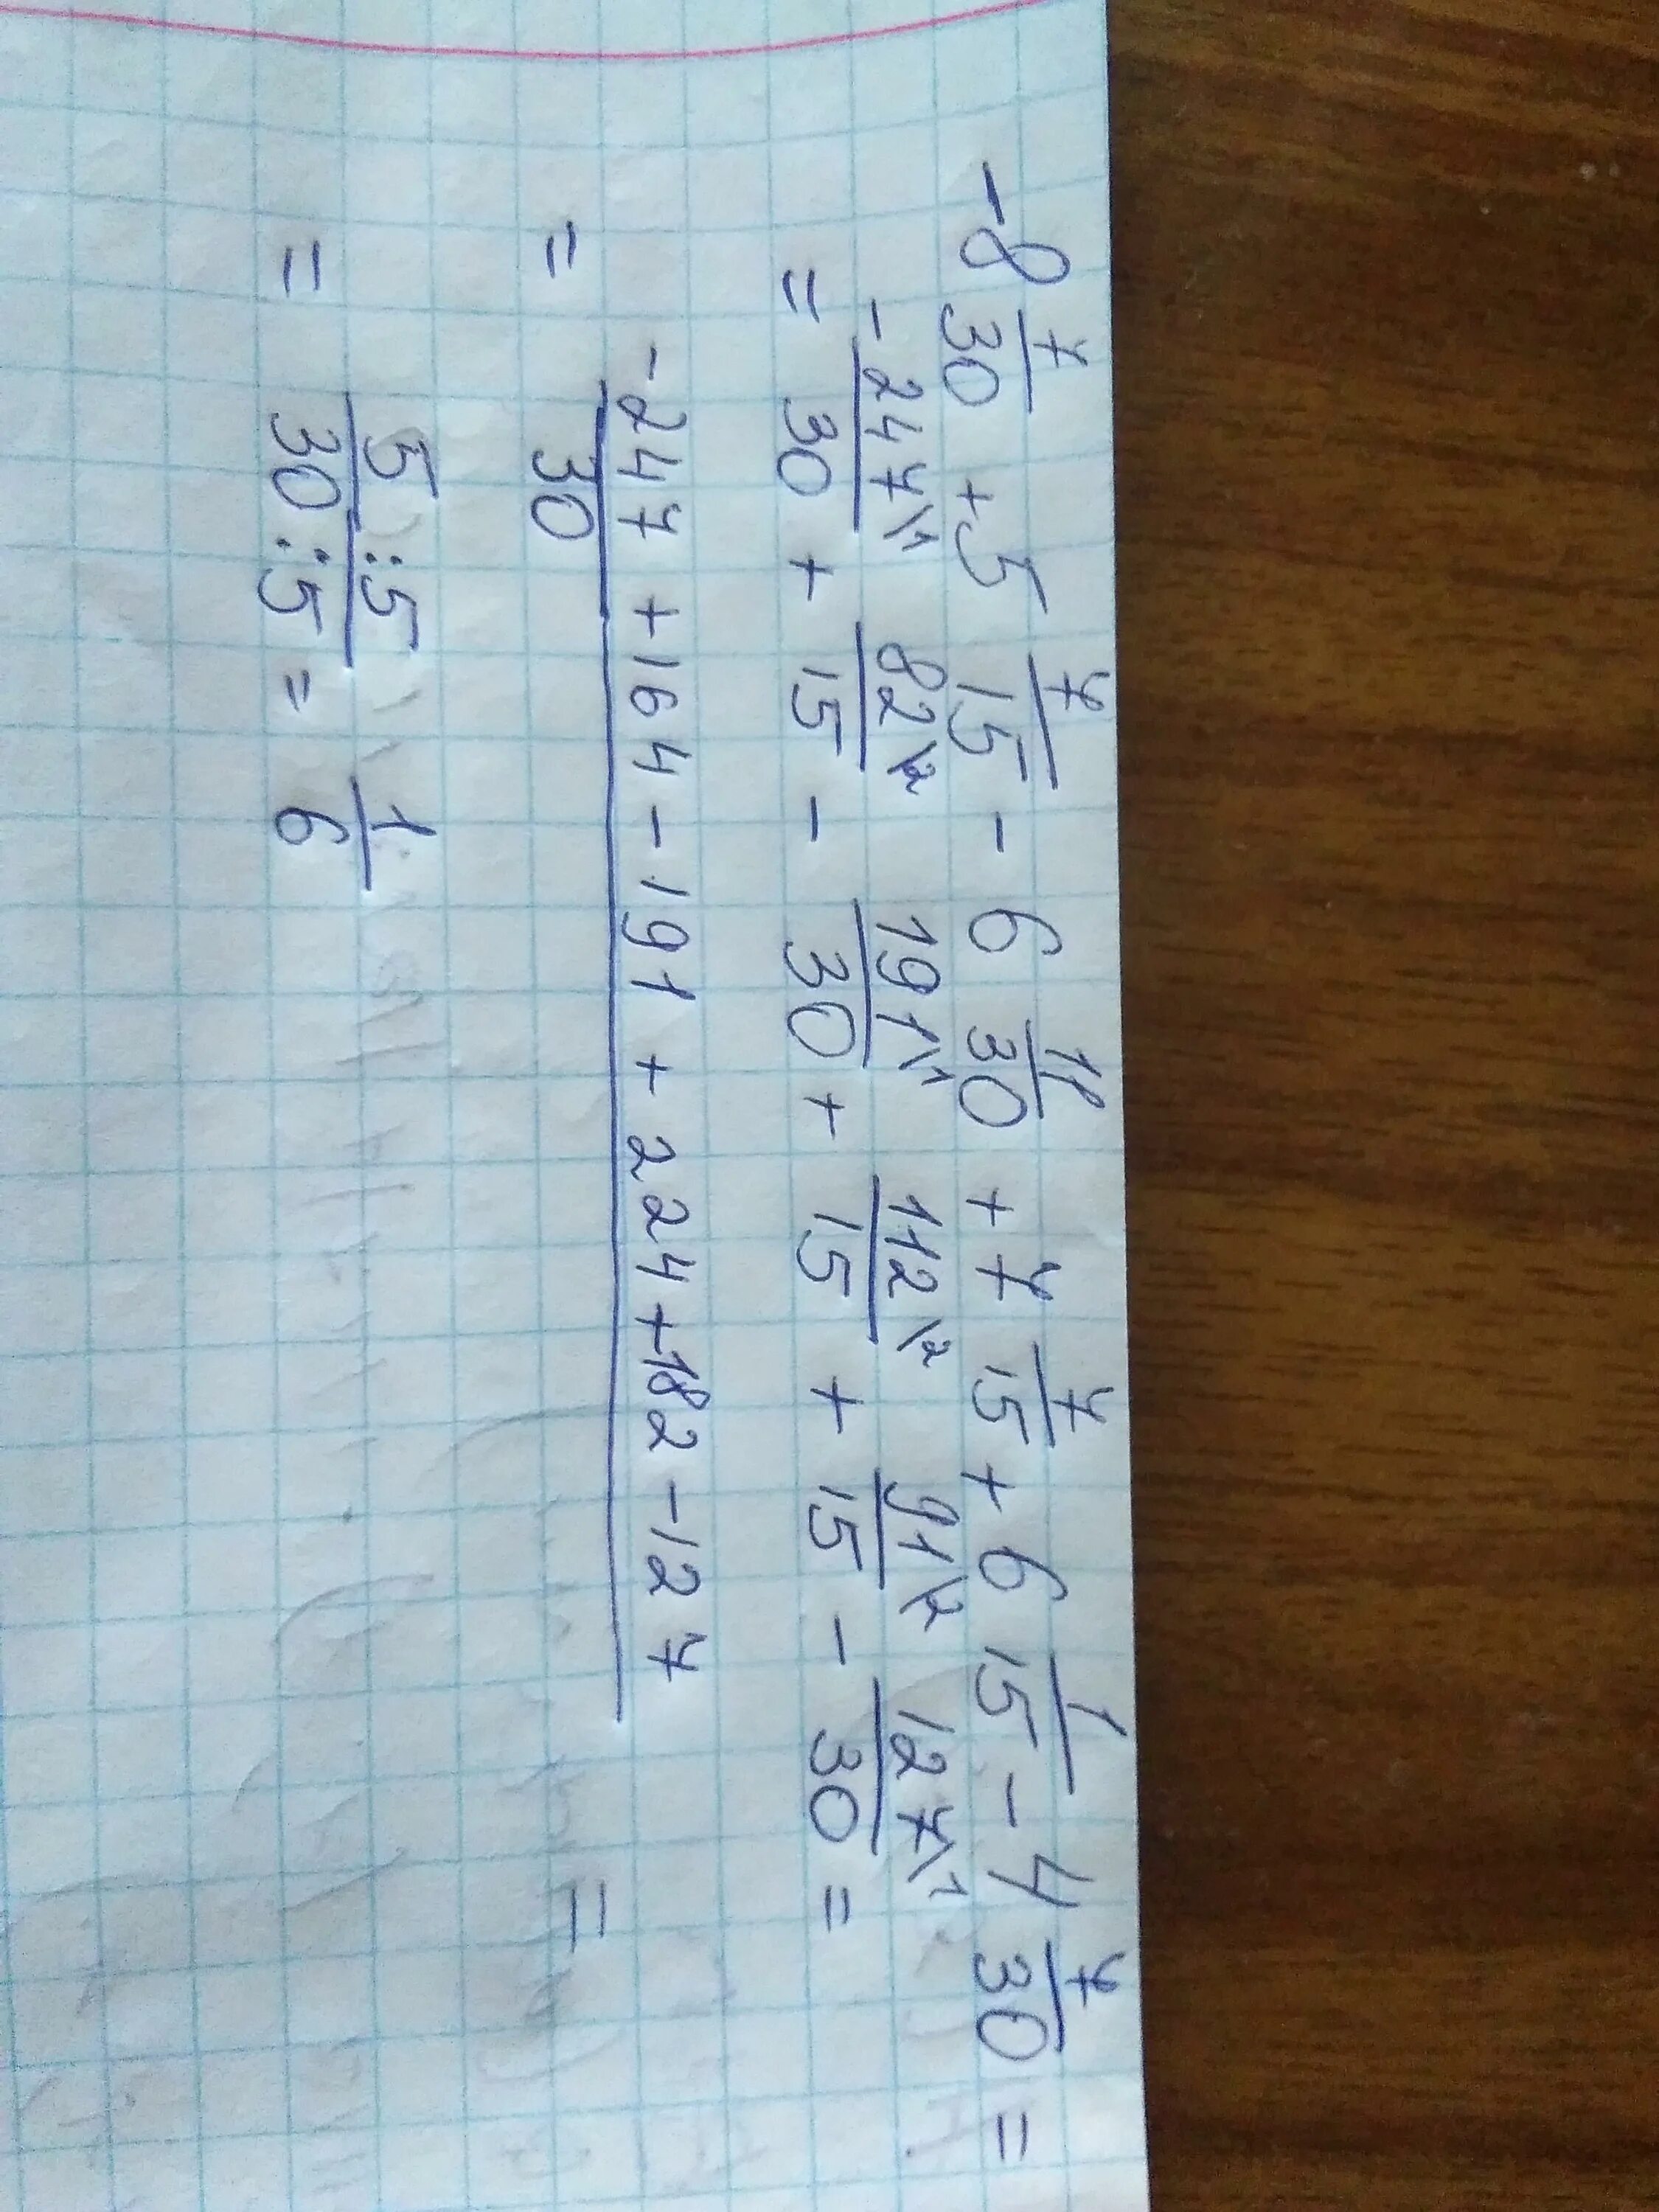 -8 7/30 + 5 7/15 - 6 11/30 + 7 7/15 + 6 1/15 - 4 7/30 =
= -247\1/30 + 82\2/15 - 191\1/30 + 112\2/15 + 91\2/15 - 127\1/30 =
= -247 + 164 - 191 + 224 + 182 - 127/30 =
= 5:5/30:5 = 1/6